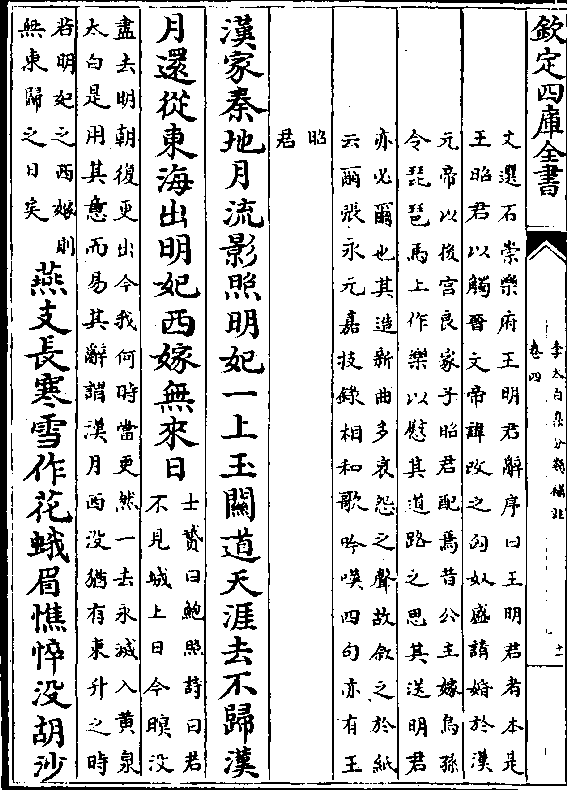 欽定四庫全書
李太白集分類補註
卷四
十一
文選石崇樂府王明君辭序曰王明君者本是
王昭君以觸晉文帝諱改之匈奴盛請婚於漢
元帝以後宮良家子昭君配焉昔公主嫁烏孫
令琵琶馬上作樂以慰其道路之思其送明君
亦必爾也其造新曲多哀怨之聲故叙之於紙
云爾張永元嘉技錄相和歌吟嘆四句亦有王
昭
君
漢家秦地月流影照明妃一上玉關道天涯去不歸漢
月還從東海出明妃西嫁無來日
士贇曰鮑照詩曰君
不見城上日今暝沒
盡去明朝復更出今我何時當更然一去永滅入黄泉
太白是用其意而易其辭謂漢月西没猶有東升之時
若明妃之西嫁則
無東歸之日矣
燕支長寒雪作花蛾眉憔悴没胡沙